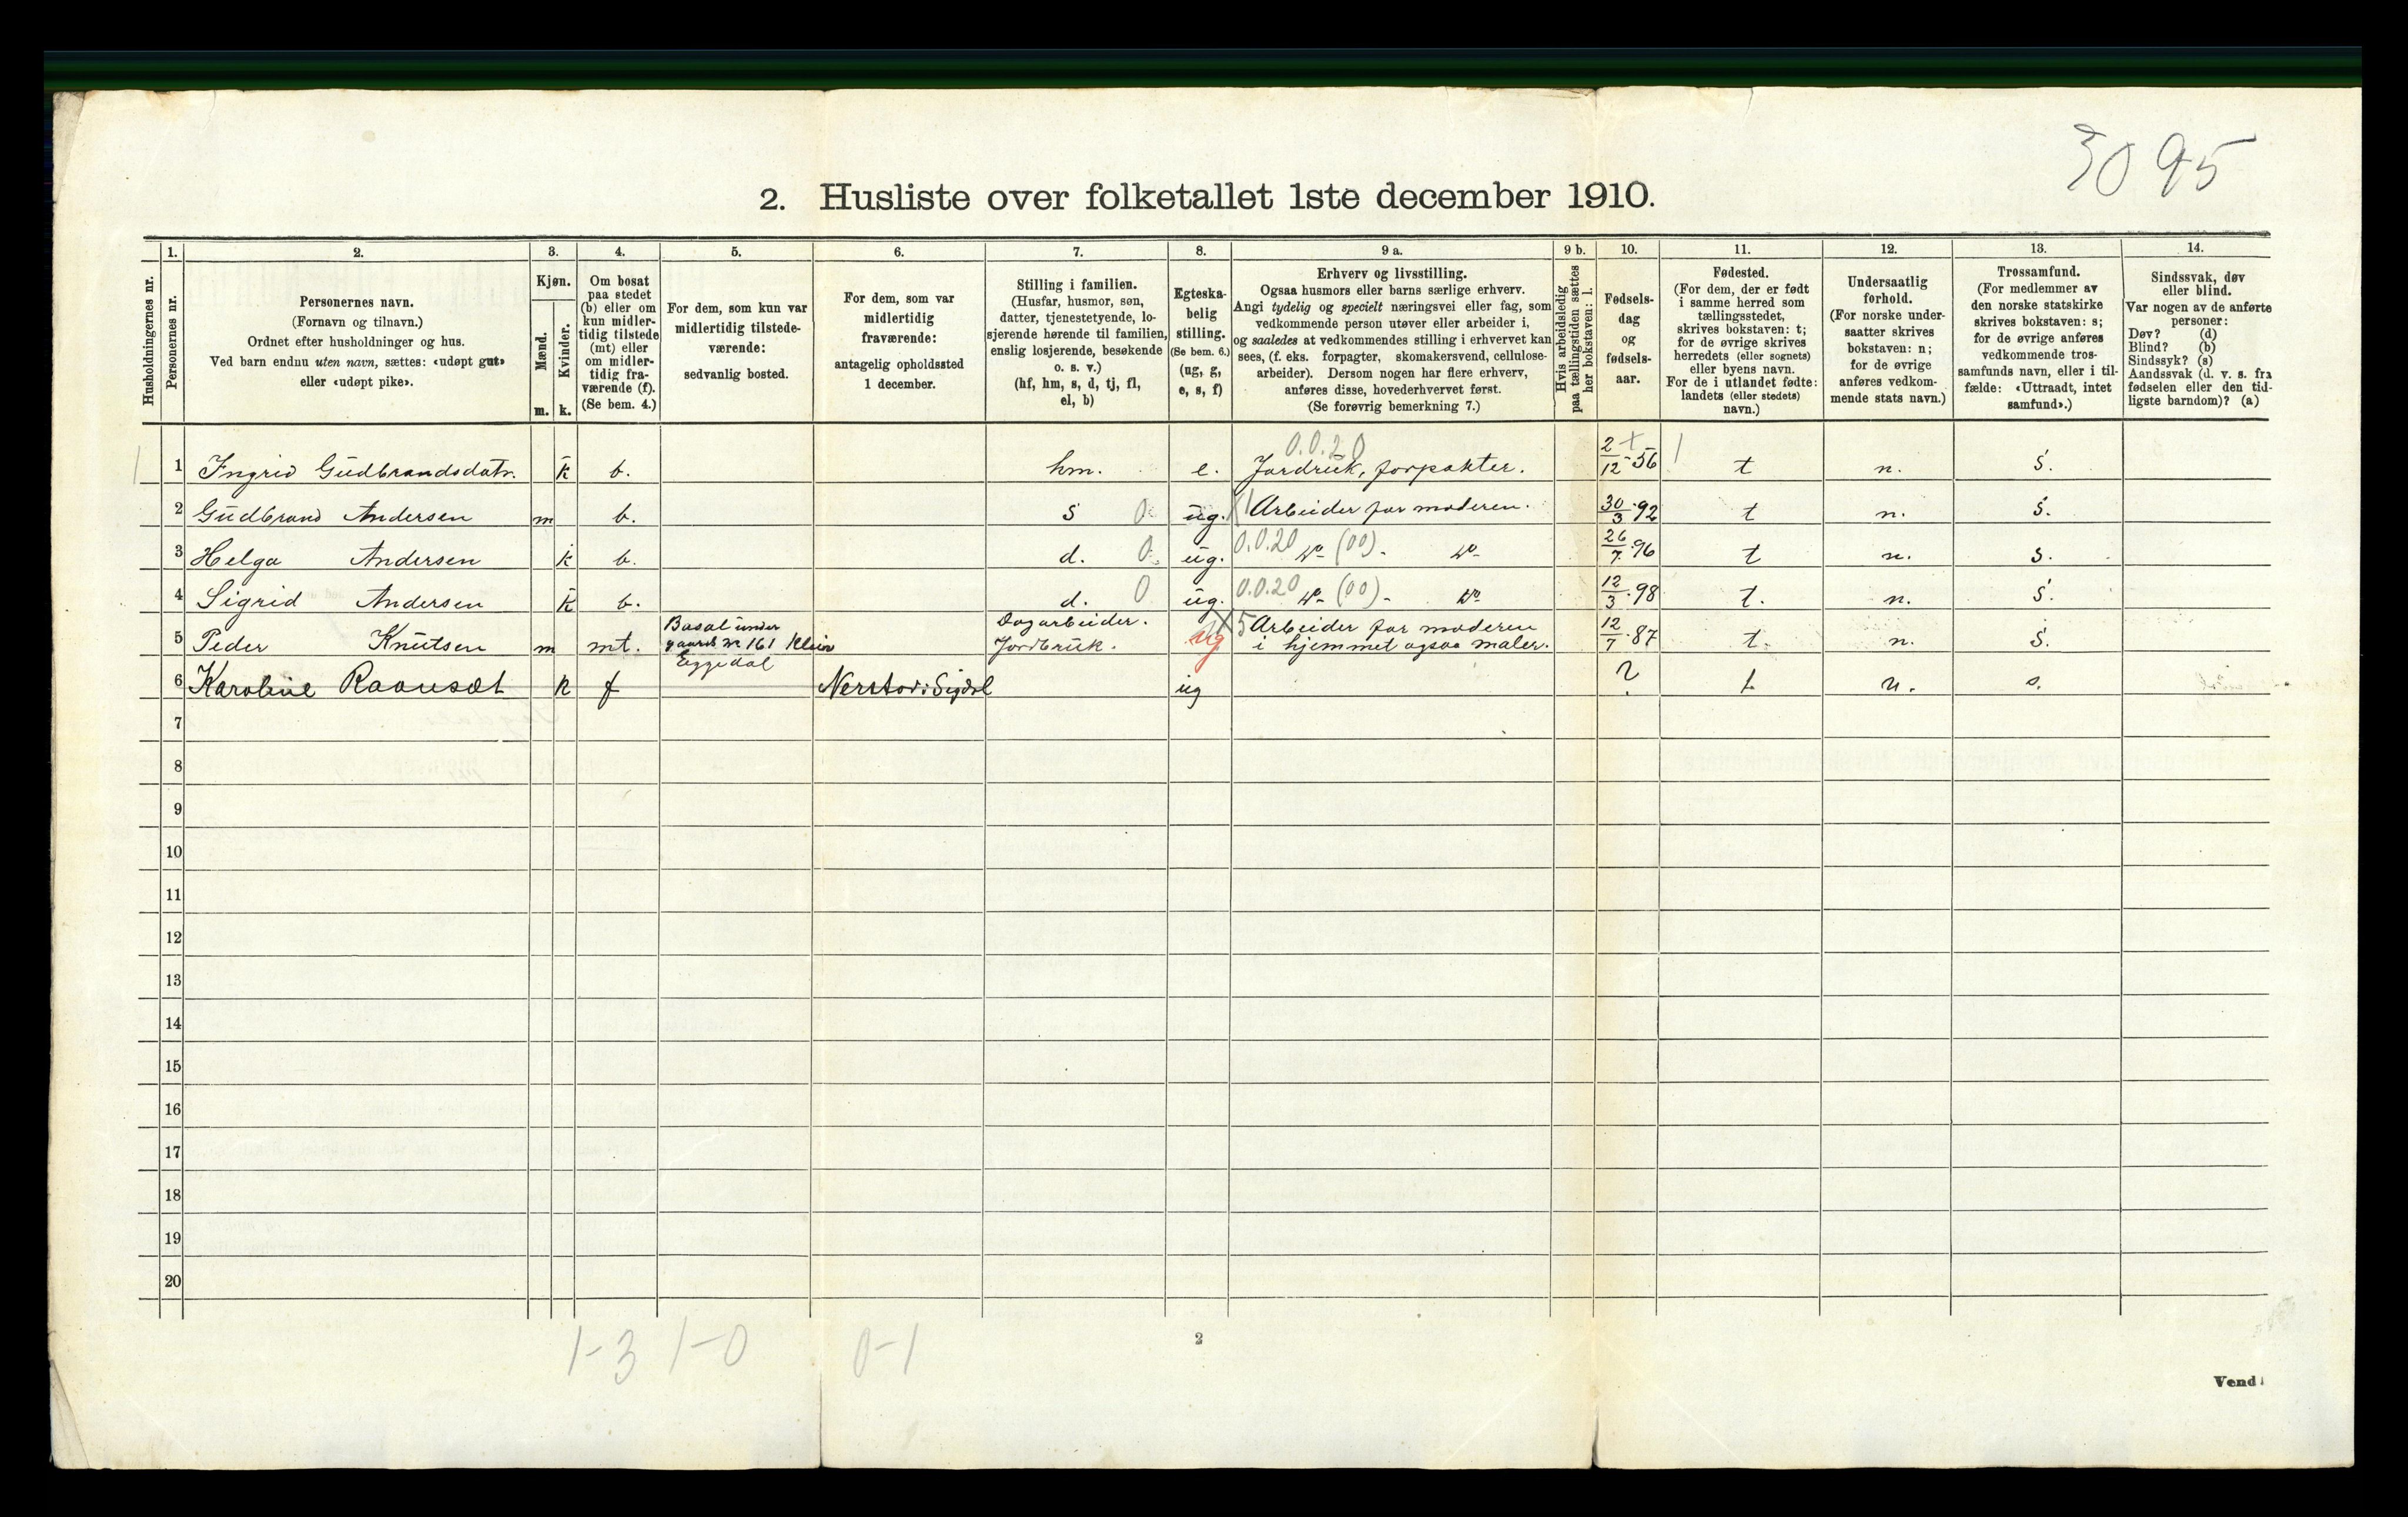 3095
2. Husliste over folketallet 1ste december 1910.
Husholdningernes nr.
1. Personernes nr.
2. Personernes navn. (Fornavn og tilnavn.) Ordnet efter husholdninger og hus. Ved barn endnu uten navn, sættes: «udøpt gut» eller «udøpt pike».
3. Kjøn. Mænd. m. Kvinder. k.
4. Om bosat paa stedet (b) eller om kun midlertidig tilstede (mt) eller om midlertidig fraværende (f). (Se bem. 4.)
5. For dem, som kun var midlertidig tilstedeværende: sedvanlig bosted.
6. For dem, som var midlertidig fraværende: antagelig opholdssted 1 december.
7. Stilling i familien. (Husfar, husmor, søn, datter, tjenestetyende, losjerende hørende til familien, enslig losjerende, besøkende o. s. v.) (hf, hm, s, d, tj, fl, el, b)
8. Egteskabelig stilling. (Se bem. 6.) (ug, g, e, s, f)
9 a. Erhverv og livsstilling. Ogsaa husmors eller barns særlige erhverv. Angi tydelig og specielt næringsvei eller fag, som vedkommende person utøver eller arbeider i, og saaledes at vedkommendes stilling i erhvervet kan sees, (f. eks. forpagter, skomakersvend, cellulosearbeider). Dersom nogen har flere erhverv, anføres disse, hovederhvervet først. (Se forøvrig bemerkning 7.)
9 b. Hvis arbeidsledig paa tællingstiden sættes her bokstaven: l.
10. Fødselsdag og fødselsaar.
11. Fødested. (For dem, der er født i samme herred som tællingsstedet, skrives bokstaven: t; for de øvrige skrives herredets (eller sognets) eller byens navn. For de i utlandet fødte: landets (eller stedets) navn.)
12. Undersaatlig forhold. (For norske undersaatter skrives bokstaven: n; for de øvrige anføres vedkommende stats navn.)
13. Trossamfund. (For medlemmer av den norske statskirke skrives bokstaven: s; for de øvrige anføres vedkommende trossamfunds navn, eller i tilfælde: «Uttraadt, intet samfund».)
14. Sindssvak, døv eller blind. Var nogen av de anførte personer: Døv? (d) Blind? (b) Sindssyk? (s) Aandssvak (d. v. s. fra fødselen eller den tidligste barndom)? (a)
0.0.20
1 1 Ingrid Gudbrandsdatr. k b. hm. e. Jordbruk, forpakter. 2/12-56 1 t n. s.
2 Gudbrand Andersen m b. s 0 ug. Arbeider for moderen. 30/3-92 t n. s.
3 Helga Andersen k b. d. 0 ug. 0.0.20 do (00) - do 26/7-96 t n. s.
4 Sigrid Andersen k b. d. 0 ug. 0.0.20 do (00) - do 12/3-98 t. n. s.
5 Peder Knutsen m mt. Bosat under gaards nr 161 Eggedal Dagarbeider. Jordbruk. ug Arbeider for moderen i hjemmet ogsaa maler. 12/7-87 t. n. s.
6 Karoline k f Sigdal ug ? t. n. s.
7
8
9
10
11
12
13
14
15
16
17
18
19
20
1-3 1-0 0-1
2
Vend!